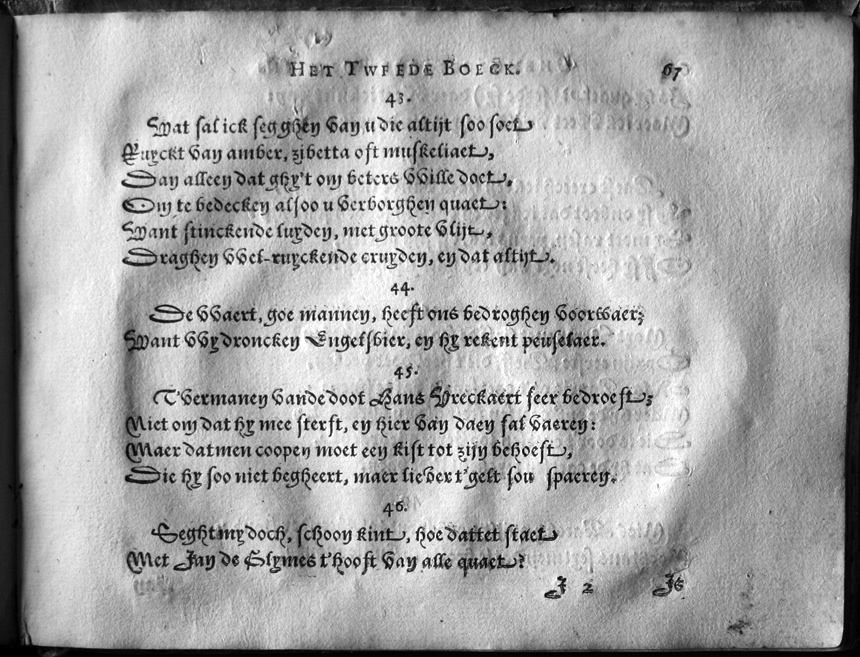 HET TWEEDE BOECK. 67
43.
Wat sal ick segghen van u die altijt soo soet
Ruyckt van amber, zibetta oft muskeliaet,
Dan alleen dat ghy't om beters VVille doet,
Om te bedecken alsoo u verborghen quaet:
Want stinckende luyden, met groote vlijt,
Draghen VVel-ruyckende cruyden, en dat altijt.
44.
De VVaert, goe mannen, heeft ons bedroghen voorwaer;
Want VVy droncken Engelsbier, en hy rekent peuselaer.
45.
T'vermanen vande doot Hans Vreckaert seer bedroeft;
Niet om dat hy mee sterft, en hier van daen sal vaeren:
Maer datmen coopen moet een kist tot zijn behoeft,
Die hy soo niet begheert, maer liever t'gelt sou spaeren.
46.
Seght my doch, schoon kint, hoe dattet staet
Met Jan de Slymes t'hooft van alle quaet?
I 2 Is